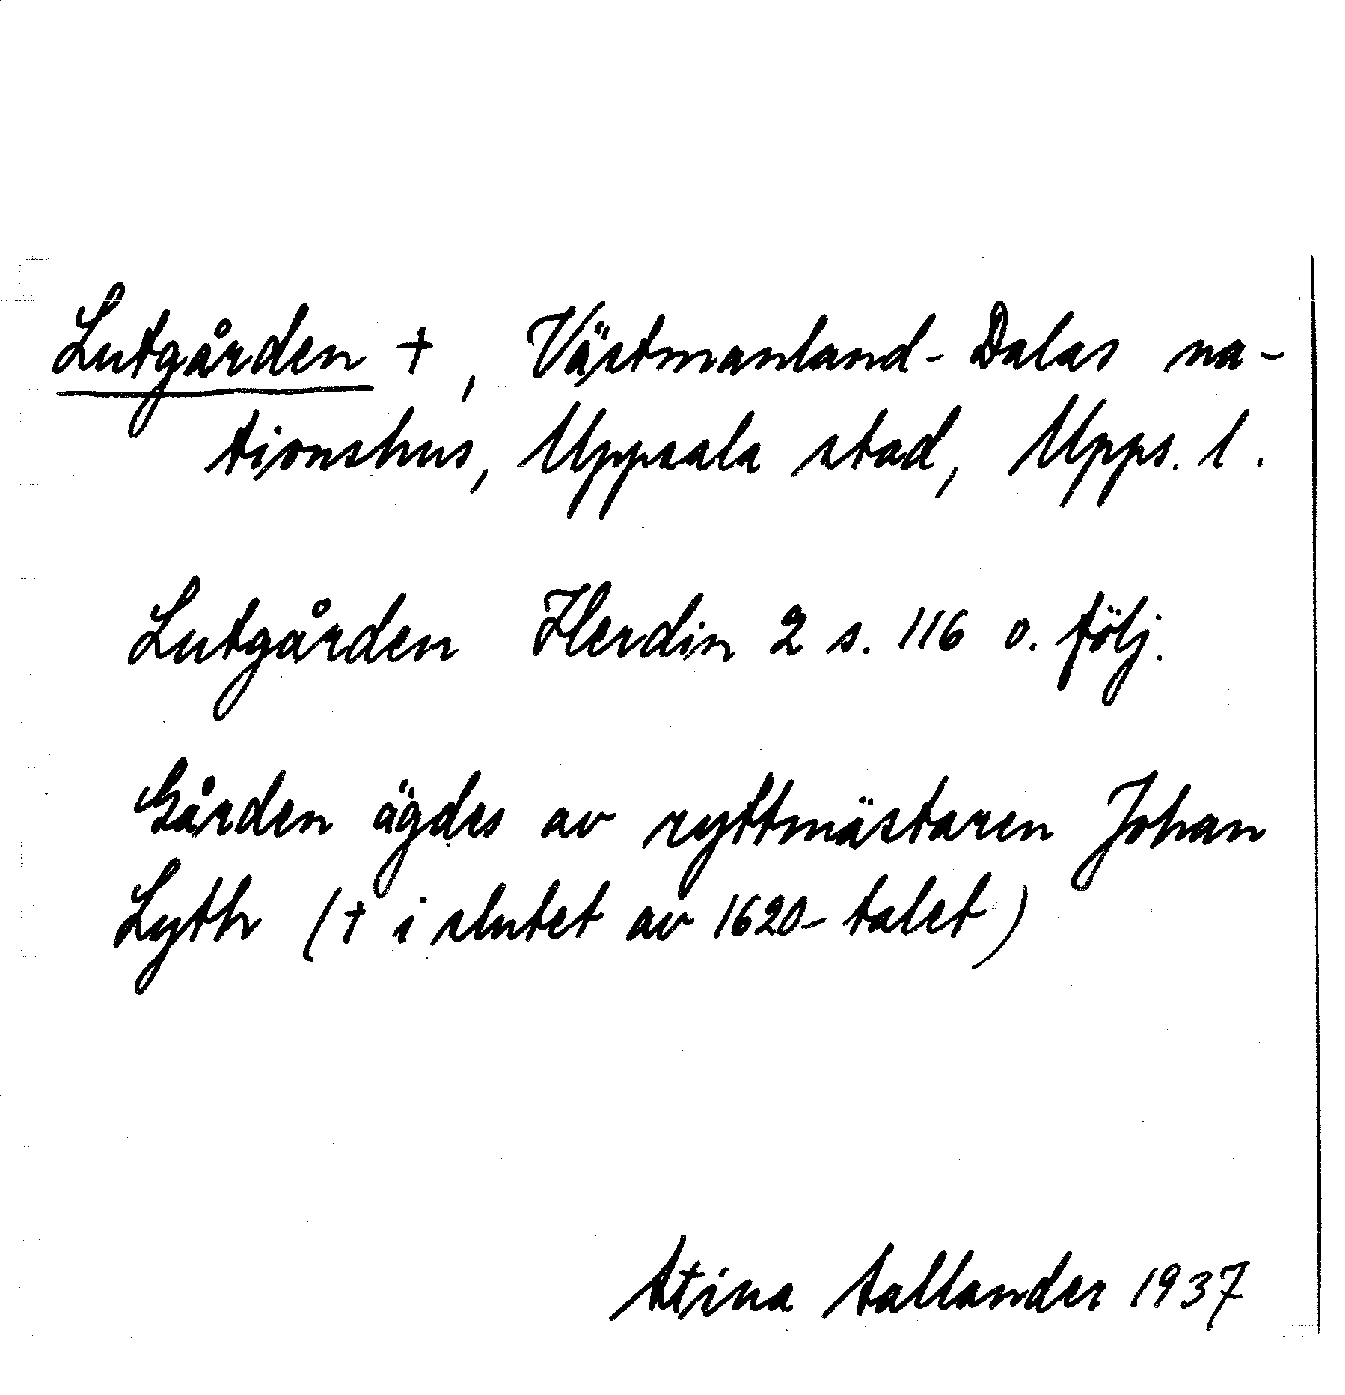 Lutgården †, Västmanland-Dalas na-
tionshus, Uppsala stad, Upps. l.
Lutgården Herdin 2 s. 116 o. följ.
Gården ägdes av ryttmästaren Johan
Lyth († i slutet av 1620-talet)
Stina Sallander 1937